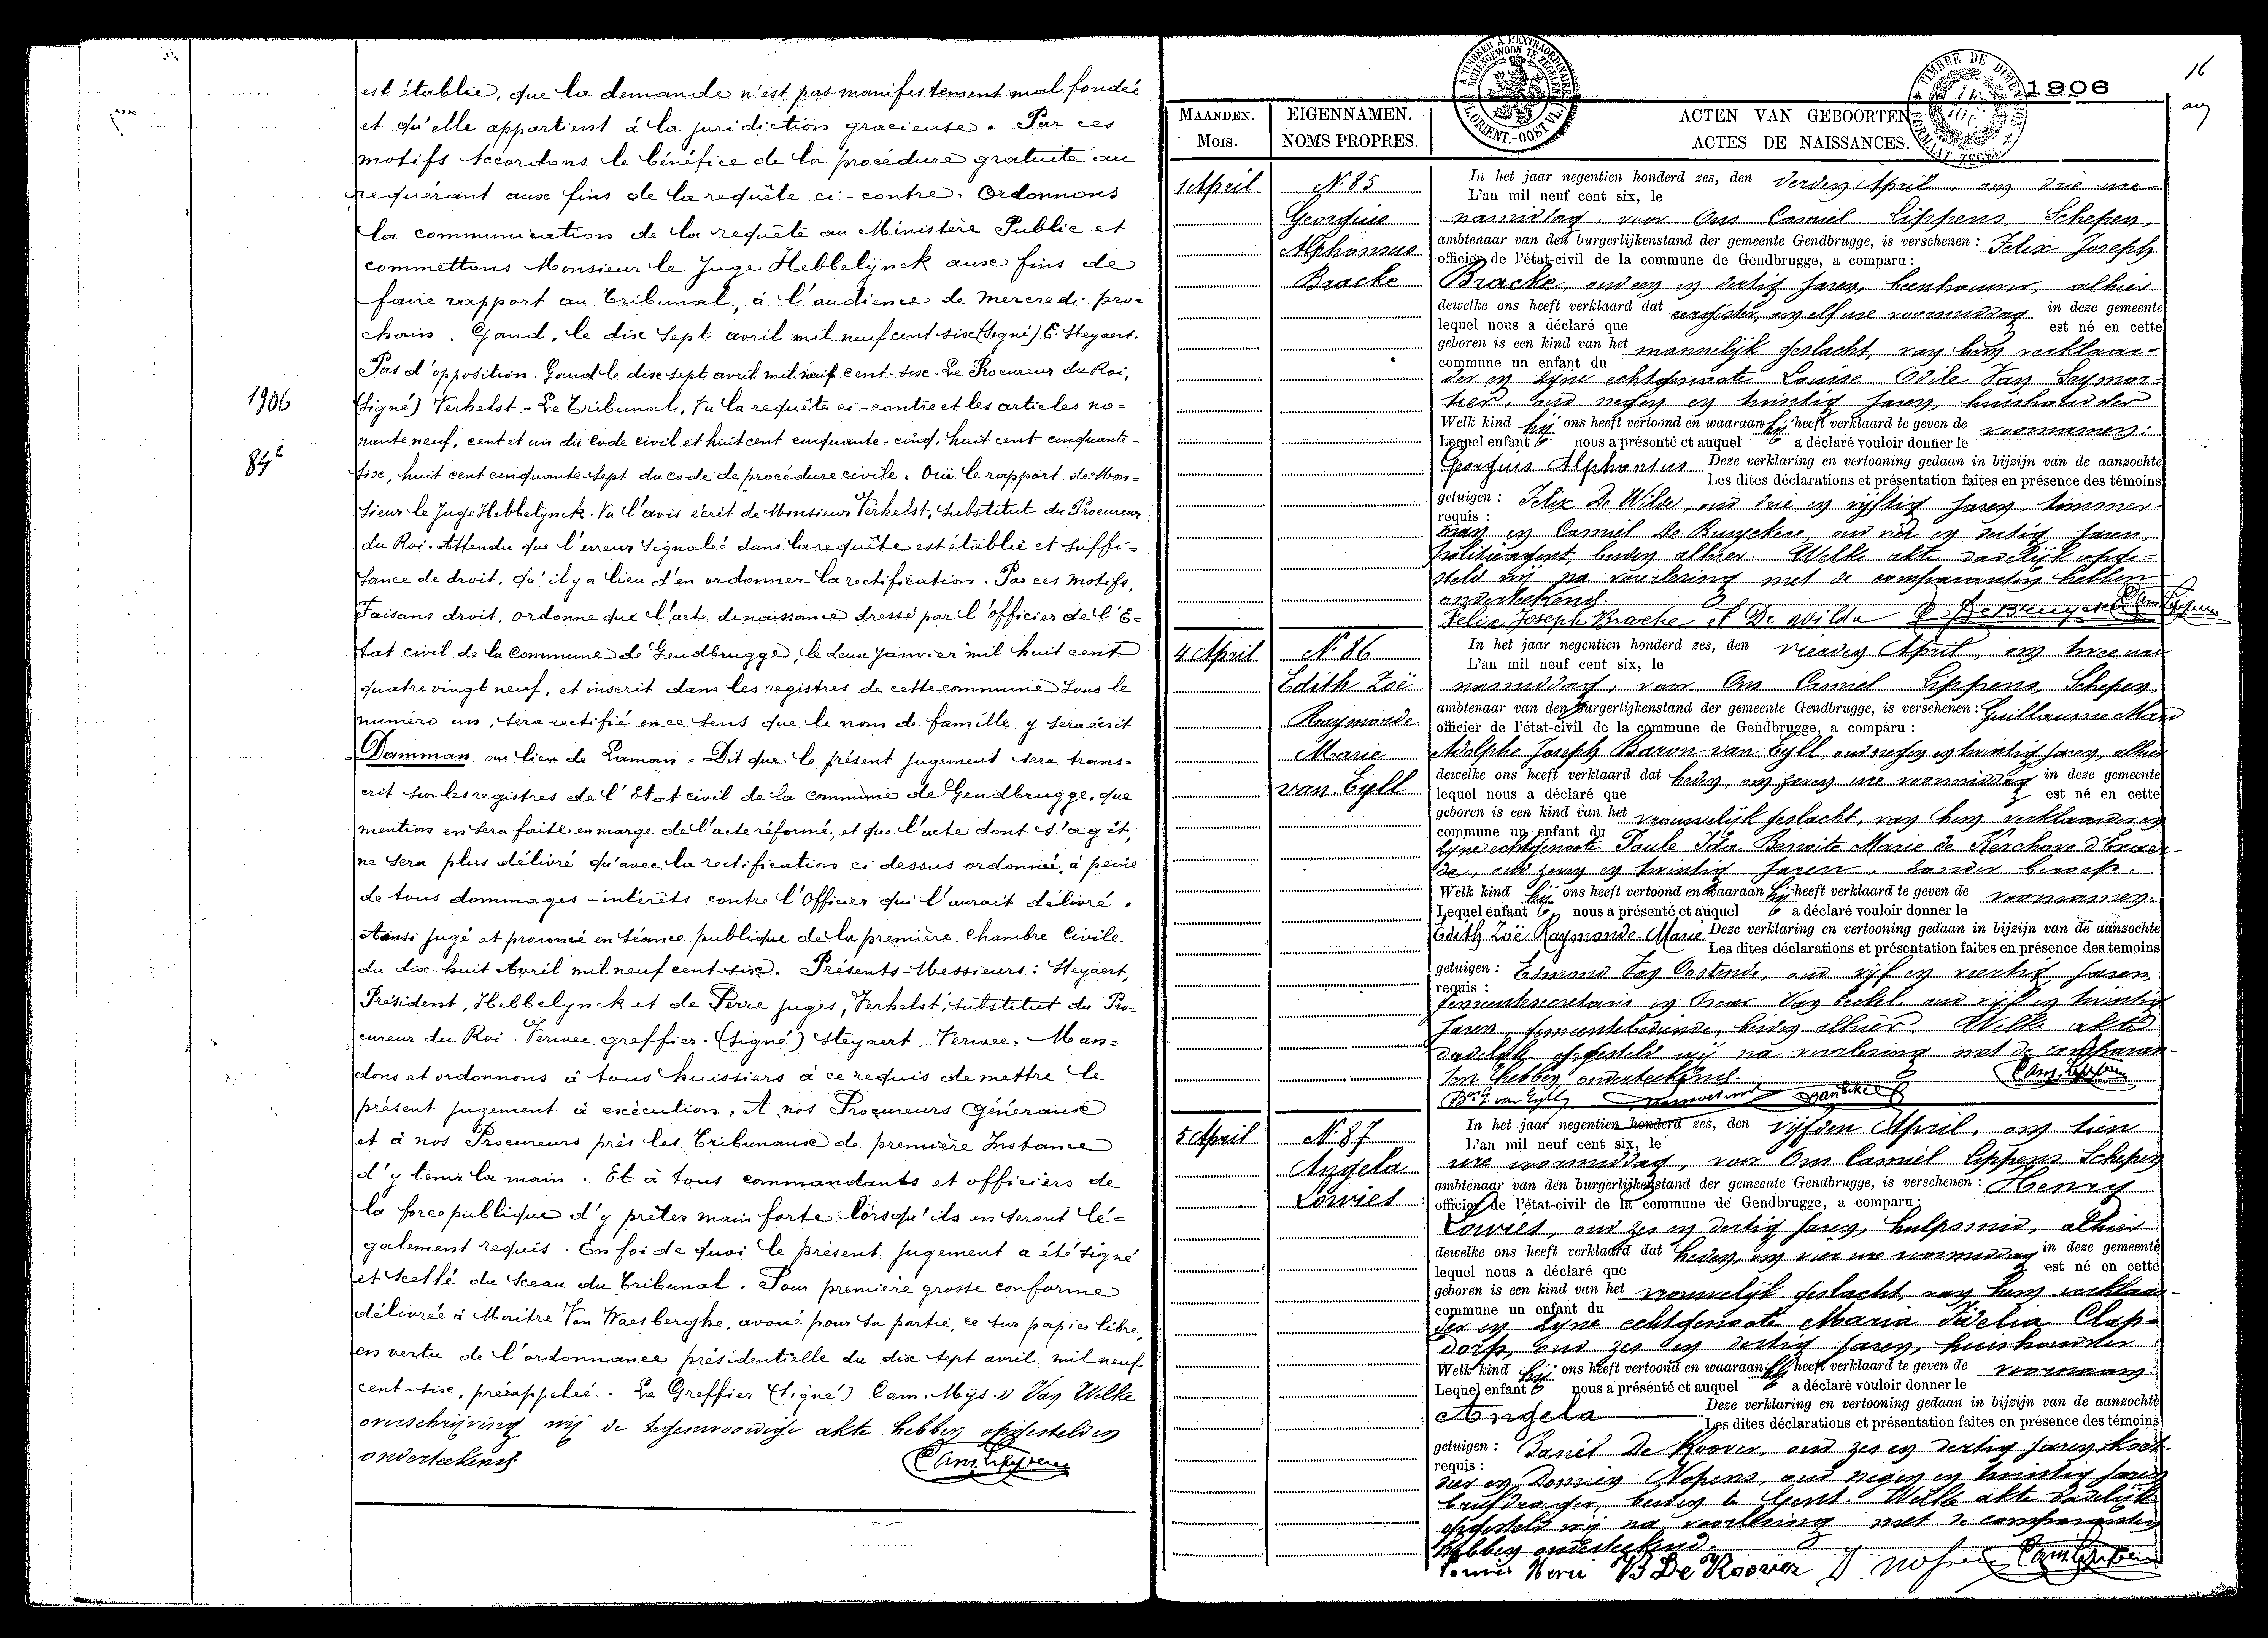 est établie, que la demande n'est pas manifestement mal fondée
et qu'elle appartient à la juridiction gracieuse. Par ces
motifs Accordons le bénéfice de la procédure gratuite au
requérant aux fins de la requête ci-contre. Ordonnons
la communication de la requête au Ministère Public et
commettons Monsieur le Juge Hebbelijnck aux fins de
faire rapport au Tribunal, à l'audience de mercredi pro=
chain. Gand, le dix sept avril mil neuf cent six (Signé) E. Steyaert.
Pas d'opposition. Gand le dix sept avril mil neuf cent-six. Le Procureur du Roi,
1906
(Signé) Verhelst. Le Tribunal; Vu la requête ci-contre et les articles no=
nante neuf, cent et un du Code civil et huit cent cinquante-cinq, huit cent cinquante-
84²
six, huit cent cinquante-sept du code de procédure civile. Ouï le rapport de Mon=
sieur le Juge Hebbelynck. Vu l'avis écrit de Monsieur Verhelst, Substitut du Procureur
du Roi. Attendu que l'erreur signalée dans la requête est établie et suffi-
sance de droit, qu'il y a lieu d'en ordonner la rectification. Par ces motifs,
Faisans droit, ordonne que l'acte de naissance dressé par l'officier de l'E-
tat civil de la Commune de Gendbrugge, le deux Janvier mil huit cent
quatre vingt neuf, et inscrit dans les registres de cette commune sous le
numéro un, sera rectifié en ce sens que le nom de famille y sera écrit
Damman au lieu de Laman. Dit que le présent jugement sera trans=
crit sur les registres de l'Etat civil de la commune de Gendbrugge, que
mention en sera faite en marge de l'acte réformé, et que l'acte dont s'agit,
ne sera plus délivré qu'avec la rectification ci dessus ordonnée, à peine
de tous dommages-intérêts contre l'Officier qui l'aurait délivré.
Ainsi jugé et prononcé en séance publique de la première Chambre Civile
du dix-huit Avril mil neuf cent-six. Présents Messieurs: Steyaert,
Président, Hebbelynck et de Perre juges, Verhelst, substitut du Pro-
cureur du Roi. Verwee greffier. (Signé) Steyaert, Verwee. Man=
dons et ordonnons à tous huissiers à ce requis de mettre le
présent jugement à exécution. A nos Procureurs Généraux
et à nos Procureurs près les Tribunaux de première Instance
d'y tenir la main. Et à tous commandants et officiers de
la force publique d'y prêter main forte lorsqu'ils en seront lé=
galement requis. En foi de quoi le présent jugement a été signé
et scellé du sceau du Tribunal. Pour première grosse conforme
délivrée à Maître Van Waesberghe, avoué pour sa partie, ce sur papier libre,
en vertu de l'ordonnance présidentielle du dix sept avril mil neuf
cent-six, prérappelée. Le Greffier (Signé) Cam. Mijs. Van Welke
overschrijving wij de tegenwoordige akte hebben opgesteld en
onderteekend
Cam. Lippens
16
1906
MAANDEN. EIGENNAMEN. ACTEN VAN GEBOORTEN
MOIS. NOMS PROPRES. ACTES DE NAISSANCES.
1 April
N. 85
Georgius
Alphonsus
Bracke
In het jaar negentien honderd zes, den derden April, om drie ure
L'an mil neuf cent six, le
namiddag, voor Ons Camiel Lippens Schepen,
ambtenaar van den burgerlijkenstand der gemeente Gendbrugge, is verschenen: Felix Joseph
officier de l'état-civil de la commune de Gendbrugge, a comparu:
Bracke, oud en dertig jaren, alhier
dewelke ons heeft verklaard dat eergister, om elf ure voormiddag in deze gemeente
lequel nous a déclaré que est né en cette
geboren is een kind van het mannelijk geslacht, van hem verklaar-
commune un enfant du
der en zijne echtgenoote Louise Odile Van Seymor-
tier, oud negen en twintig jaren, huishoudster
Welk kind hij ons heeft vertoond en waaraan hij heeft verklaard te geven de voornamen:
Lequel enfant nous a présenté et auquel a déclaré vouloir donner le
Georgius Alphonsus Deze verklaring en vertooning gedaan in bijzijn van de aanzochte
Les dites déclarations et présentation faites en présence des témoins
getuigen: Felix De Wilde, oud drie en vijftig jaren, timmer-
requis:
man en Camiel De Bruyckere, oud en dertig jaren,
politieagent, beiden alhier. Welke akte dadelijk opge-
steld wij na voorlezing met de comparanten hebben
onderteekend.
Felix Joseph Bracke F De Wilde De Bruyckere Cam Lippens
4 April
N. 86
Edith Zoë
Raymonde
Marie
van Eyll
In het jaar negentien honderd zes, den vierden April, om twee ure
L'an mil neuf cent six, le
namiddag, voor Ons Camiel Lippens Schepen,
ambtenaar van den burgerlijkenstand der gemeente Gendbrugge, is verschenen: Guillaume Marie
officier de l'état-civil de la commune de Gendbrugge, a comparu:
Adolphe Joseph Baron van Eyll, oud negen en twintig jaren, alhier
dewelke ons heeft verklaard dat heden, om zeven ure voormiddag in deze gemeente
lequel nous a déclaré que est né en cette
geboren is een kind van het vrouwelijk geslacht, van hem verklaarder en
commune un enfant du
zijne echtgenoote Paule Ida Benoite Marie de Kerchove d'Exaer-
de, oud zeven en twintig jaren, zonder beroep.
Welk kind hij ons heeft vertoond en waaraan hij heeft verklaard te geven de voornamen:
Lequel enfant nous a présenté et auquel a déclaré vouloir donner le
Edith Zoë Raymonde Marie Deze verklaring en vertooning gedaan in bijzijn van de aanzochte
Les dites déclarations et présentation faites en présence des temoins
getuigen: Edmond Van Oostende, oud vijf en veertig jaren
requis:
gemeentesecretaris en Oscar Van Eeckel, oud vijf en twintig
jaren, gemeentebediende, beiden alhier. Welke akte
dadelijk opgesteld wij na voorlezing met de comparan-
ten hebben onderteekend.
Bon G. van Eyll Cam. Lippens
5 April
N. 87
Angela
Lowies
In het jaar negentien honderd zes, den vijfden April, om tien
L'an mil neuf cent six, le
ure voormiddag, voor Ons Camiel Lippens Schepen
ambtenaar van den burgerlijkenstand der gemeente Gendbrugge, is verschenen: Henry
officier de l'état-civil de la commune de Gendbrugge, a comparu:
Lowies, oud zes en dertig jaren, hulpsmid, alhier
dewelke ons heeft verklaard dat heden, om vier ure voormiddag in deze gemeente
lequel nous a déclaré que est né en cette
geboren is een kind van het vrouwelijk geslacht van hem verklaar-
commune un enfant du
der en zijne echtgenoote Maria Fidelia Clap-
dorp, oud zes en dertig jaren, huishoudster
Welk kind hij ons heeft vertoond en waaraan hij heeft verklaard te geven de voornaam:
Lequel enfant nous a présenté et auquel a déclaré vouloir donner le
Deze verklaring en vertooning gedaan in bijzijn van de aanzochte
Angela
Les dites déclarations et présentation faites en présence des témoins
getuigen: Daniël De Roover, oud zes en dertig jaren,
requis:
en Nopens, oud negen en twintig jaren
briefdrager, beiden te Gent. Welke akte dadelijk
opgesteld wij na voorlezing met de comparanten
hebben onderteekend.
De Roover Cam Lippens